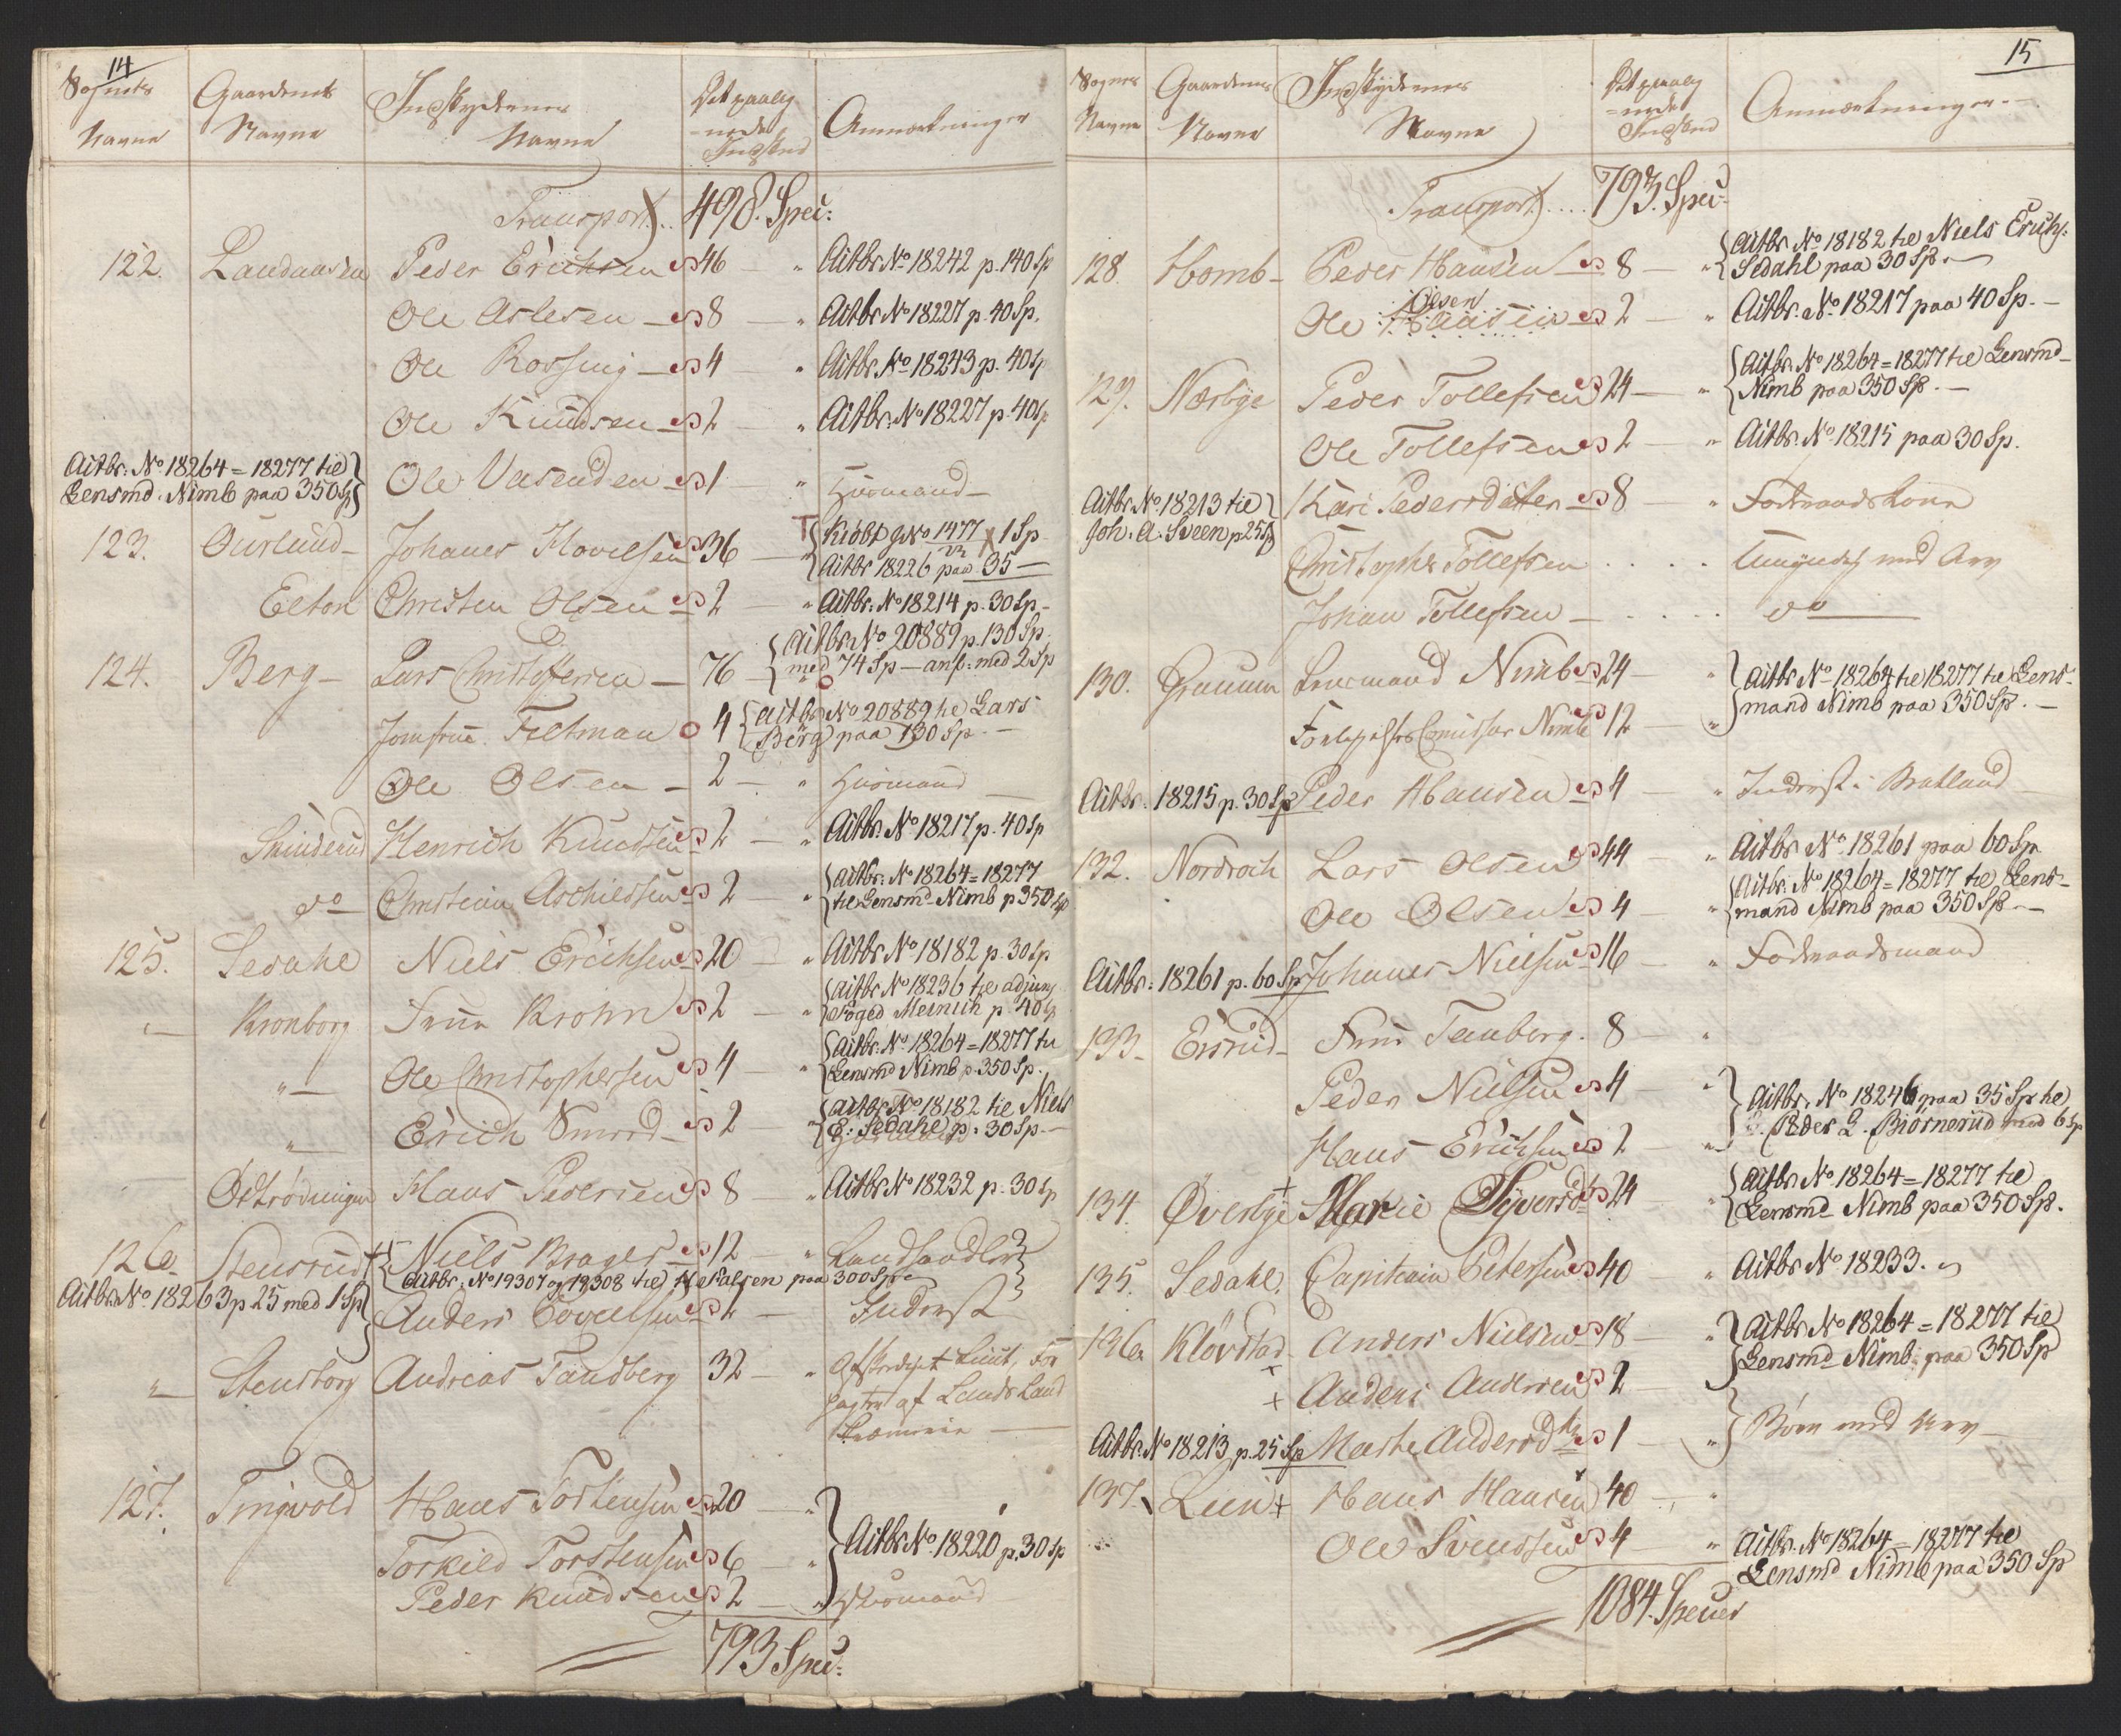 14
Sognets Navne Gaardenes Navne Indskydernes Navne Det paalignede Indskud Anmærkninger
Transport .. 498. Speci:
122. Landaasen Peder Erichsen 46 — " Actbr No 18242 p. 140 Sp
Ole Aslesen — 8 — " Actbr No 18227 p. 40 Sp.
Ole Rossing — 4 — " Actbr. No 18243 p. 40 Sp
Ole Knudsen — 2 — " Actbr: No 18227 p. 40 Sp
Actbr: No 18264 = 18277 til
Lensmd. Nimb paa 350 Sp
Ole Vasenden — 1 " Huusmand —
123. Ourlund — Johanes Hovelsen 36 — Kiøbt No 1477 1 Sp
Actbr 18226 paa 35 —
Elton Christen Olsen 2 — " Actbr: No 18214 p. 30 Sp —
124. Berg — Lars Christoffersen — 76 — Actbr No 20889 p. 130 Sp.
med 74 Sp — anf: med 2 Sp
Jomfrue Feltman 4 Actbr No 20889 til Lars
Berg paa 130 Sp. —
Ole Olsen — 2 — " Huusmand —
Skinderud Henrich Knudsen 2 — " Actbr. No 18217 p. 40 Sp
do Christian Aschildsen 2 — " Actbr: No 18264 = 18277
til Lensmd Nimb p 350 Sp
125. Sedahl Niels Erichsen 20 — " Actbr No 18182 p. 30 Sp
" — Kronborg Frue Krohn 2 — " Actbr No 18236 til adjung
Foged Meinich p. 40 Sp
" — Ole Christophersen 4 — " Actbr. No 18264 = 18277 til
Lensmd Nimb p. 350 Sp.
" — Erich Smed — 2 — " Actbr. No 18182 til Niels
E. Sedahl p. 30 Sp. —
Østrødningen Hans Pedersen 8 — " Actbr No 18232 p. 30 Sp
126 Stensrud Niels Brager 12 — " Landhandler
Actbr. No 19307 og 19308 til Falsen paa 300 Sp
Actbr No 18263 p 25 med 1 Sp
Anders 2 — Inderst
" — Stensborg Andreas Tandberg 32 — " Afskediget Lieut, For
pagter af Lands Land
127. Tingvold Hans Torstensen 20 — "
Torkild Torstensen 6 — " Actbr No 18220 p. 30 Sp
Peder Knudsen 2 — " Huusmand
793 Speci:
15
Sognes Navne Gaardenes Navne Indskydernes Navne Det paalignede Indskud Anmærkninger. —
Transport .... 793. Speci:
128. Homb — Peder Hansen 8 — " Actbr No 18182 til Niels Erichs:
Sedahl paa 30 Sp. —
Olsen
Ole Hansen 2 — " Actbr. No 18217 paa 40 Sp. —
129. Nørbye Peder Tollefsen 24 — " Actbr. No 18264 = 18277 til Lensmd
Nimb paa 350 Sp. —
Ole Tollefsen 2 — " Actbr. No 18215 paa 30 Sp.
Actbr. No 18213 til
Joh. A. Sveen p 25 Sp
Kari Pedersdatter 8 — " Føderaadskone
Christopher Tollefsen . . . . Umyndig med Arv
Johan Tollefsen — . . . do
130. Grauum Lensmand Nimb 24 — " Actbr No 18264 til 18277 til Lens-
mand Nimb paa 350 Sp. —
Nimb 12 — "
Actbr. 18215 p. 30 Sp Peder Hansen 4 — " Inderst i Bratland
132. Nordroch Lars Olsen 44 — " Actbr No 18261 paa 60 Sp
Ole Olsen 4 — " Actbr. No 18264 = 18277 til Lens-
mand Nimb paa 350 Sp. —
Actbr: 18261 p. 60 Sp Johanes Nielsen 16 — " Føderaadsmand
133. Ersrud Frue Tanberg. 8 — "
Peder Nielsen 4 — " Actbr. No 18246 paa 35 Sp til
Peder L. Biørnerud med 6 Sp
Hans Erichsen 2 — "
134. Øverbye Marie Syversd. 24 — " Actbr No 18264 = 18277 til
Lensmd Nimb paa 350 Sp.
135. Sedahl. Capitain Petersen 40 — " Actbr No 18233.
136. Kløvstad Anders Nielsen 18 — " Actbr No 18264 = 18277 til
Lensmd Nimb paa 350 Sp
Anders Andersen 2
Actbr. No 18213 p. 25 Sp Marte Andersd. 1 — " Børn med Arv
137. Lien Hans Hansen 40 — "
Ole Svendsen 4 — " Actbr. No 18264 = 18277 til
Lensmd Nimb paa 350 Sp
1084. Specier